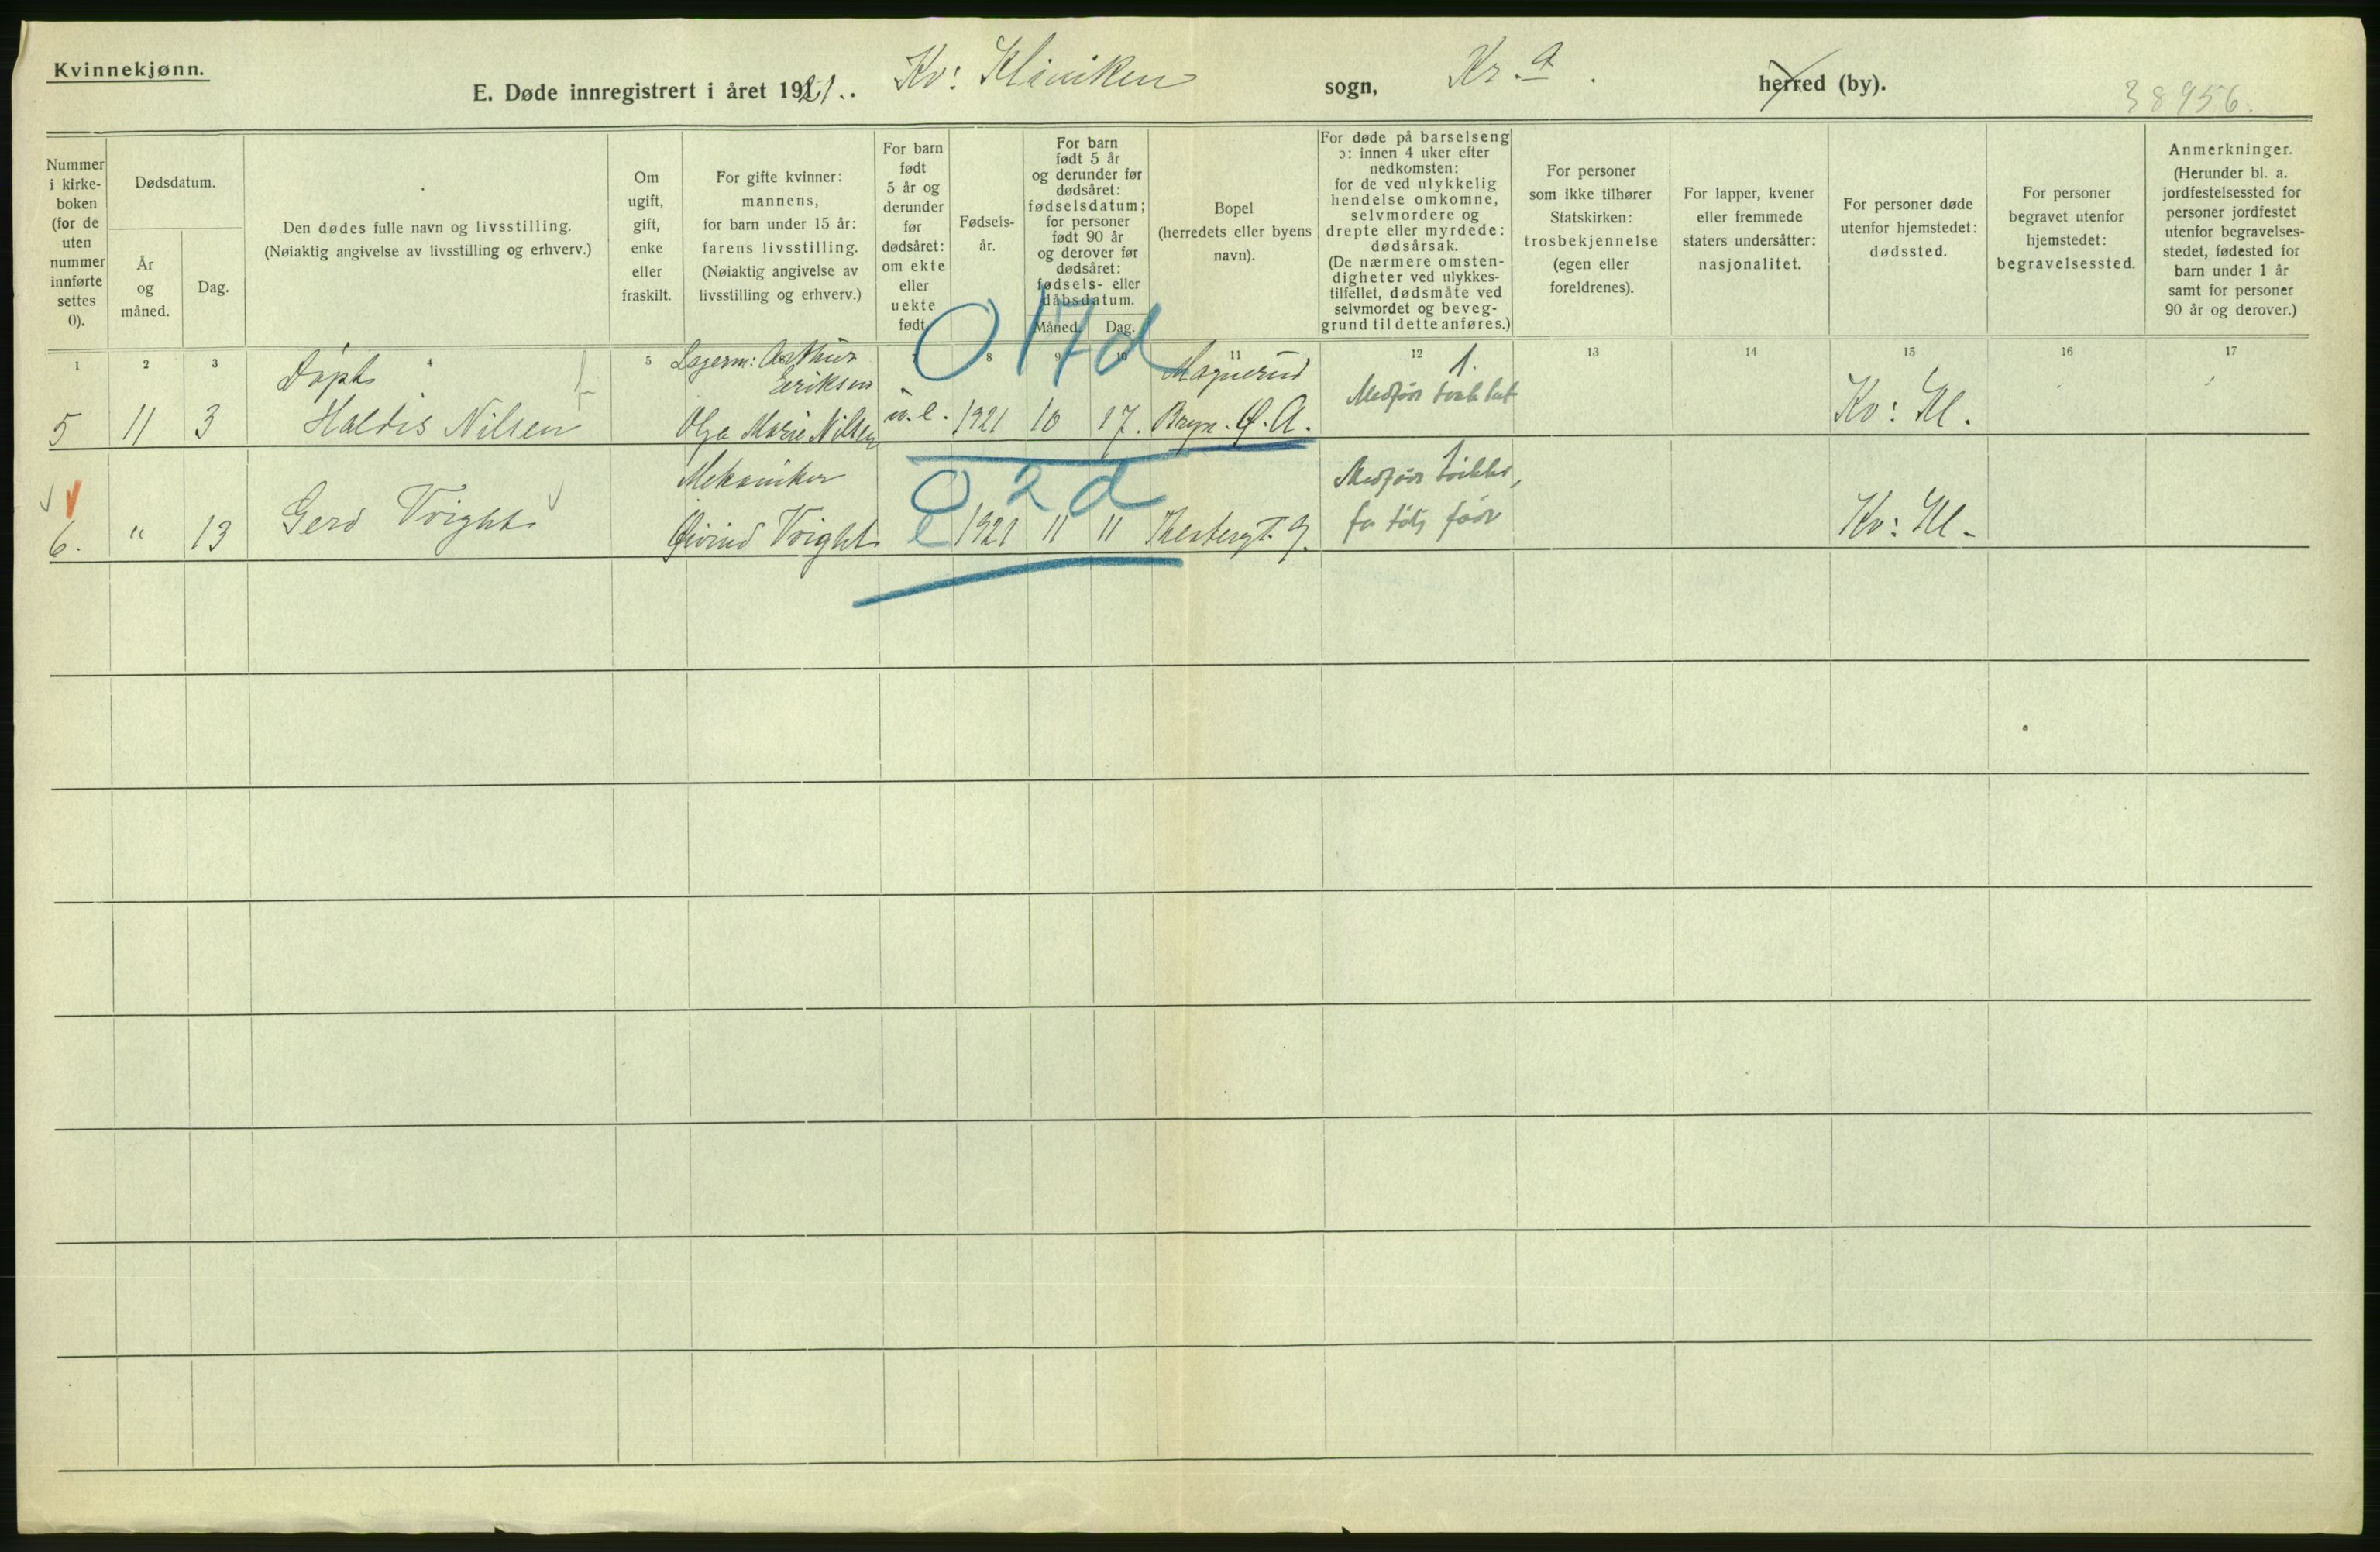 Kvinnekjønn.
E. Døde innregistrert i året 1921. Kv: Kliniken sogn, Kr.a. herred (by).
38956.
Nummer i kirke-boken (for de uten nummer innførte settes 0).
Dødsdatum.
År og måned.
Dag.
Den dødes fulle navn og livsstilling.
(Nøiaktig angivelse av livsstilling og erhverv.)
Om ugift, gift, enke eller fraskilt.
For gifte kvinner: mannens, for barn under 15 år: farens livsstilling.
(Nøiaktig angivelse av livsstilling og erhverv.)
For barn født 5 år og derunder før dødsåret: om ekte eller uekte født.
Fødsels-år.
For barn født 5 år og derunder før dødsåret: fødselsdatum; for personer født 90 år og derover før dødsåret: fødsels- eller dåbsdatum.
Måned.
Dag.
Bopel
(herredets eller byens navn).
For døde på barselseng ɔ: innen 4 uker efter nedkomsten: for de ved ulykkelig hendelse omkomne, selvmordere og drepte eller myrdede: dødsårsak.
(De nærmere omsten-digheter ved ulykkes-tilfellet, dødsmåte ved selvmordet og beveg-grund til dette anføres.)
For personer som ikke tilhører Statskirken: trosbekjennelse (egen eller foreldrenes).
For lapper, kvener eller fremmede staters undersåtter: nasjonalitet.
For personer døde utenfor hjemstedet: dødssted.
For personer begravet utenfor hjemstedet: begravelsessted.
Anmerkninger.
(Herunder bl. a. jordfestelsessted for personer jordfestet utenfor begravelses-stedet, fødested for barn under 1 år samt for personer 90 år og derover.)
1 2 3 4 5 7 8 9 10 11 12 13 14 15 16 17
0 17 d
Døpt Lagerm: Arthur Eriksen 1.
5 11 3 Haldis Nilsen Olga Marie Nilsen u.e. 1921 10 17. Bryn. Ø.A. Kv: Kl.
0 2 d
Mekaniker 1
6. " 13 Gerd Wright Øivind Wright e 1921 11 11 Kv: Kl.